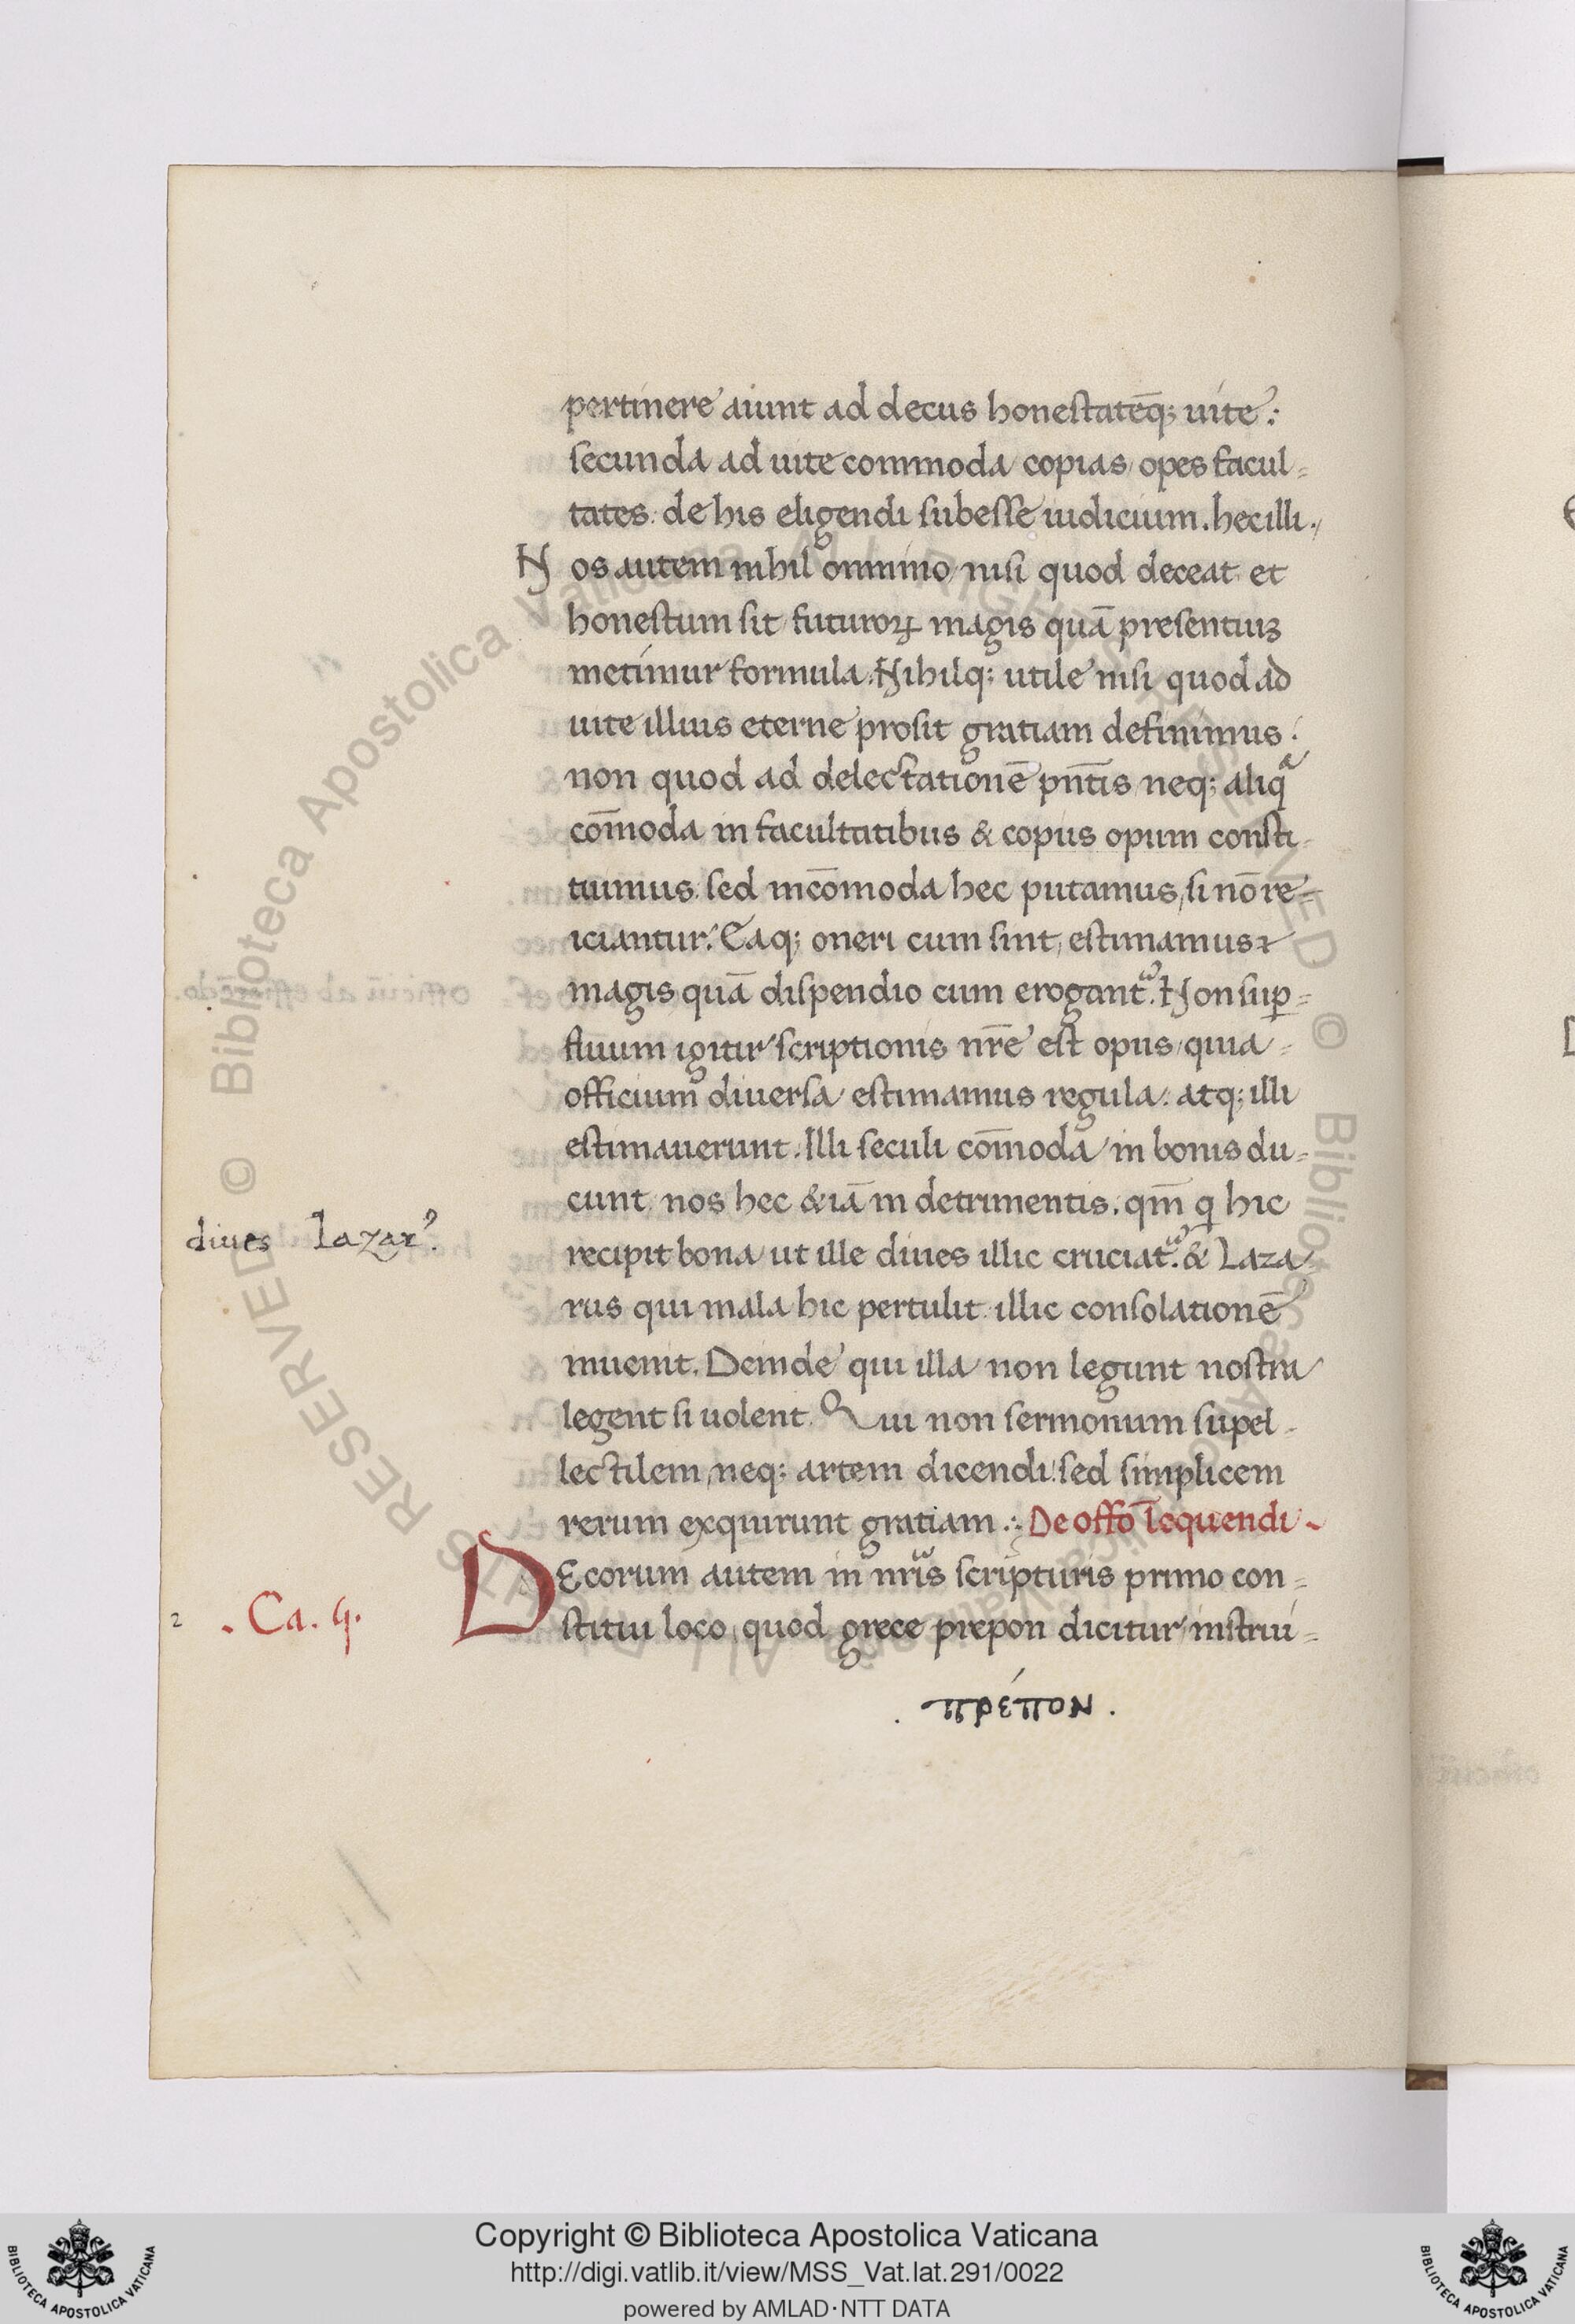 pertinere aiunt ad decus honestatēq; uite:
secunda ad uite commoda copias opes facul=
tates. de his eligendi subesse iudicium. hec illi.
Nos autem nihil omnino nisi quod deceat et
honestum sit futuroꝝ magis quā presentiuꝫ
metimur formula. Nihilq; utile nisi quod ad
uite illius eterne prosit gratiam definimus:
non quod ad delectationē pñtis neq; aliqᵃ
cōmoda in facultatibus & copiis opum consti-
tuimus. sed incōmoda hec putamus, si nō re-
iciantur. Eaq; oneri cum sint, estimamus
magis quā dispendio cum erogant᷑. Non suꝑ=
fluum igitur scriptionis nr̄e est opus quia
officium diuersa estimamus regula. atq; illi
estimauerunt. Illi seculi cōmoda in bonis du-
cunt nos hec &iā in detrimentis. qm̄ q hic
recipit bona ut ille diues illic cruciat᷑. & Laza
rus qui mala hic pertulit illic consolationē
inuenit. Deinde qui illa non legunt nostra
legent si uolent. Qui non sermonum supel-
lectilem, neq; artem dicendi. sed simplicem
rerum exquirunt gratiam. De offō loquendi
DEcorum autem in nr̄is scripturis primo con=
stitui loco, quod grece prepon dicitur instrui=
. πρέπον .
diues Lazarꝰ.
2 . Ca. 9.
© Biblioteca Apostolica Vaticana ALL RIGHTS RESERVED
© Biblioteca Apostolica Vaticana ALL RIGHTS RESERVED
Copyright © Biblioteca Apostolica Vaticana
http://digi.vatlib.it/view/MSS_Vat.lat.291/0022
powered by AMLAD·NTT DATA
BIBLIOTECA APOSTOLICA VATICANA
BIBLIOTECA APOSTOLICA VATICANA